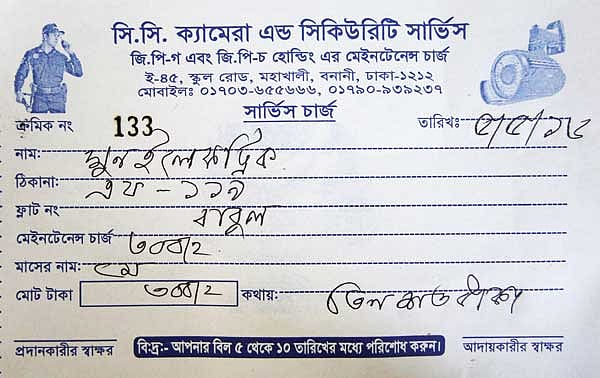 সি.সি. ক্যামেরা এন্ড সিকিউরিটি সার্ভিস
জি.পি-গ এবং জি.পি-চ হোল্ডিং এর মেইনটেনেন্স চার্জ
ই-৪৫, স্কুল রোড, মহাখালী, বনানী, ঢাকা-১২১২
মোবাইলঃ ০১৭০৩-৬৫৫৬৬৬, ০১৭৯০-৯৩৯২৩৭
সার্ভিস চার্জ
ক্রমিক নং 133 তারিখঃ ৫/৫/১৮
নাম: মুন ইলেকট্রিক
ঠিকানা: এফ - ১১৯
ফ্লাট নং বাবুল
মেইনটেনেন্স চার্জ ৩০০/২
মাসের নাম: মে
মোট টাকা ৩০০/২ কথায়: তিন শত টাকা
প্রদানকারীর স্বাক্ষর বি:দ্র:- আপনার বিল ৫ থেকে ১০ তারিখের মধ্যে পরিশোধ করুন। আদায়কারীর স্বাক্ষর